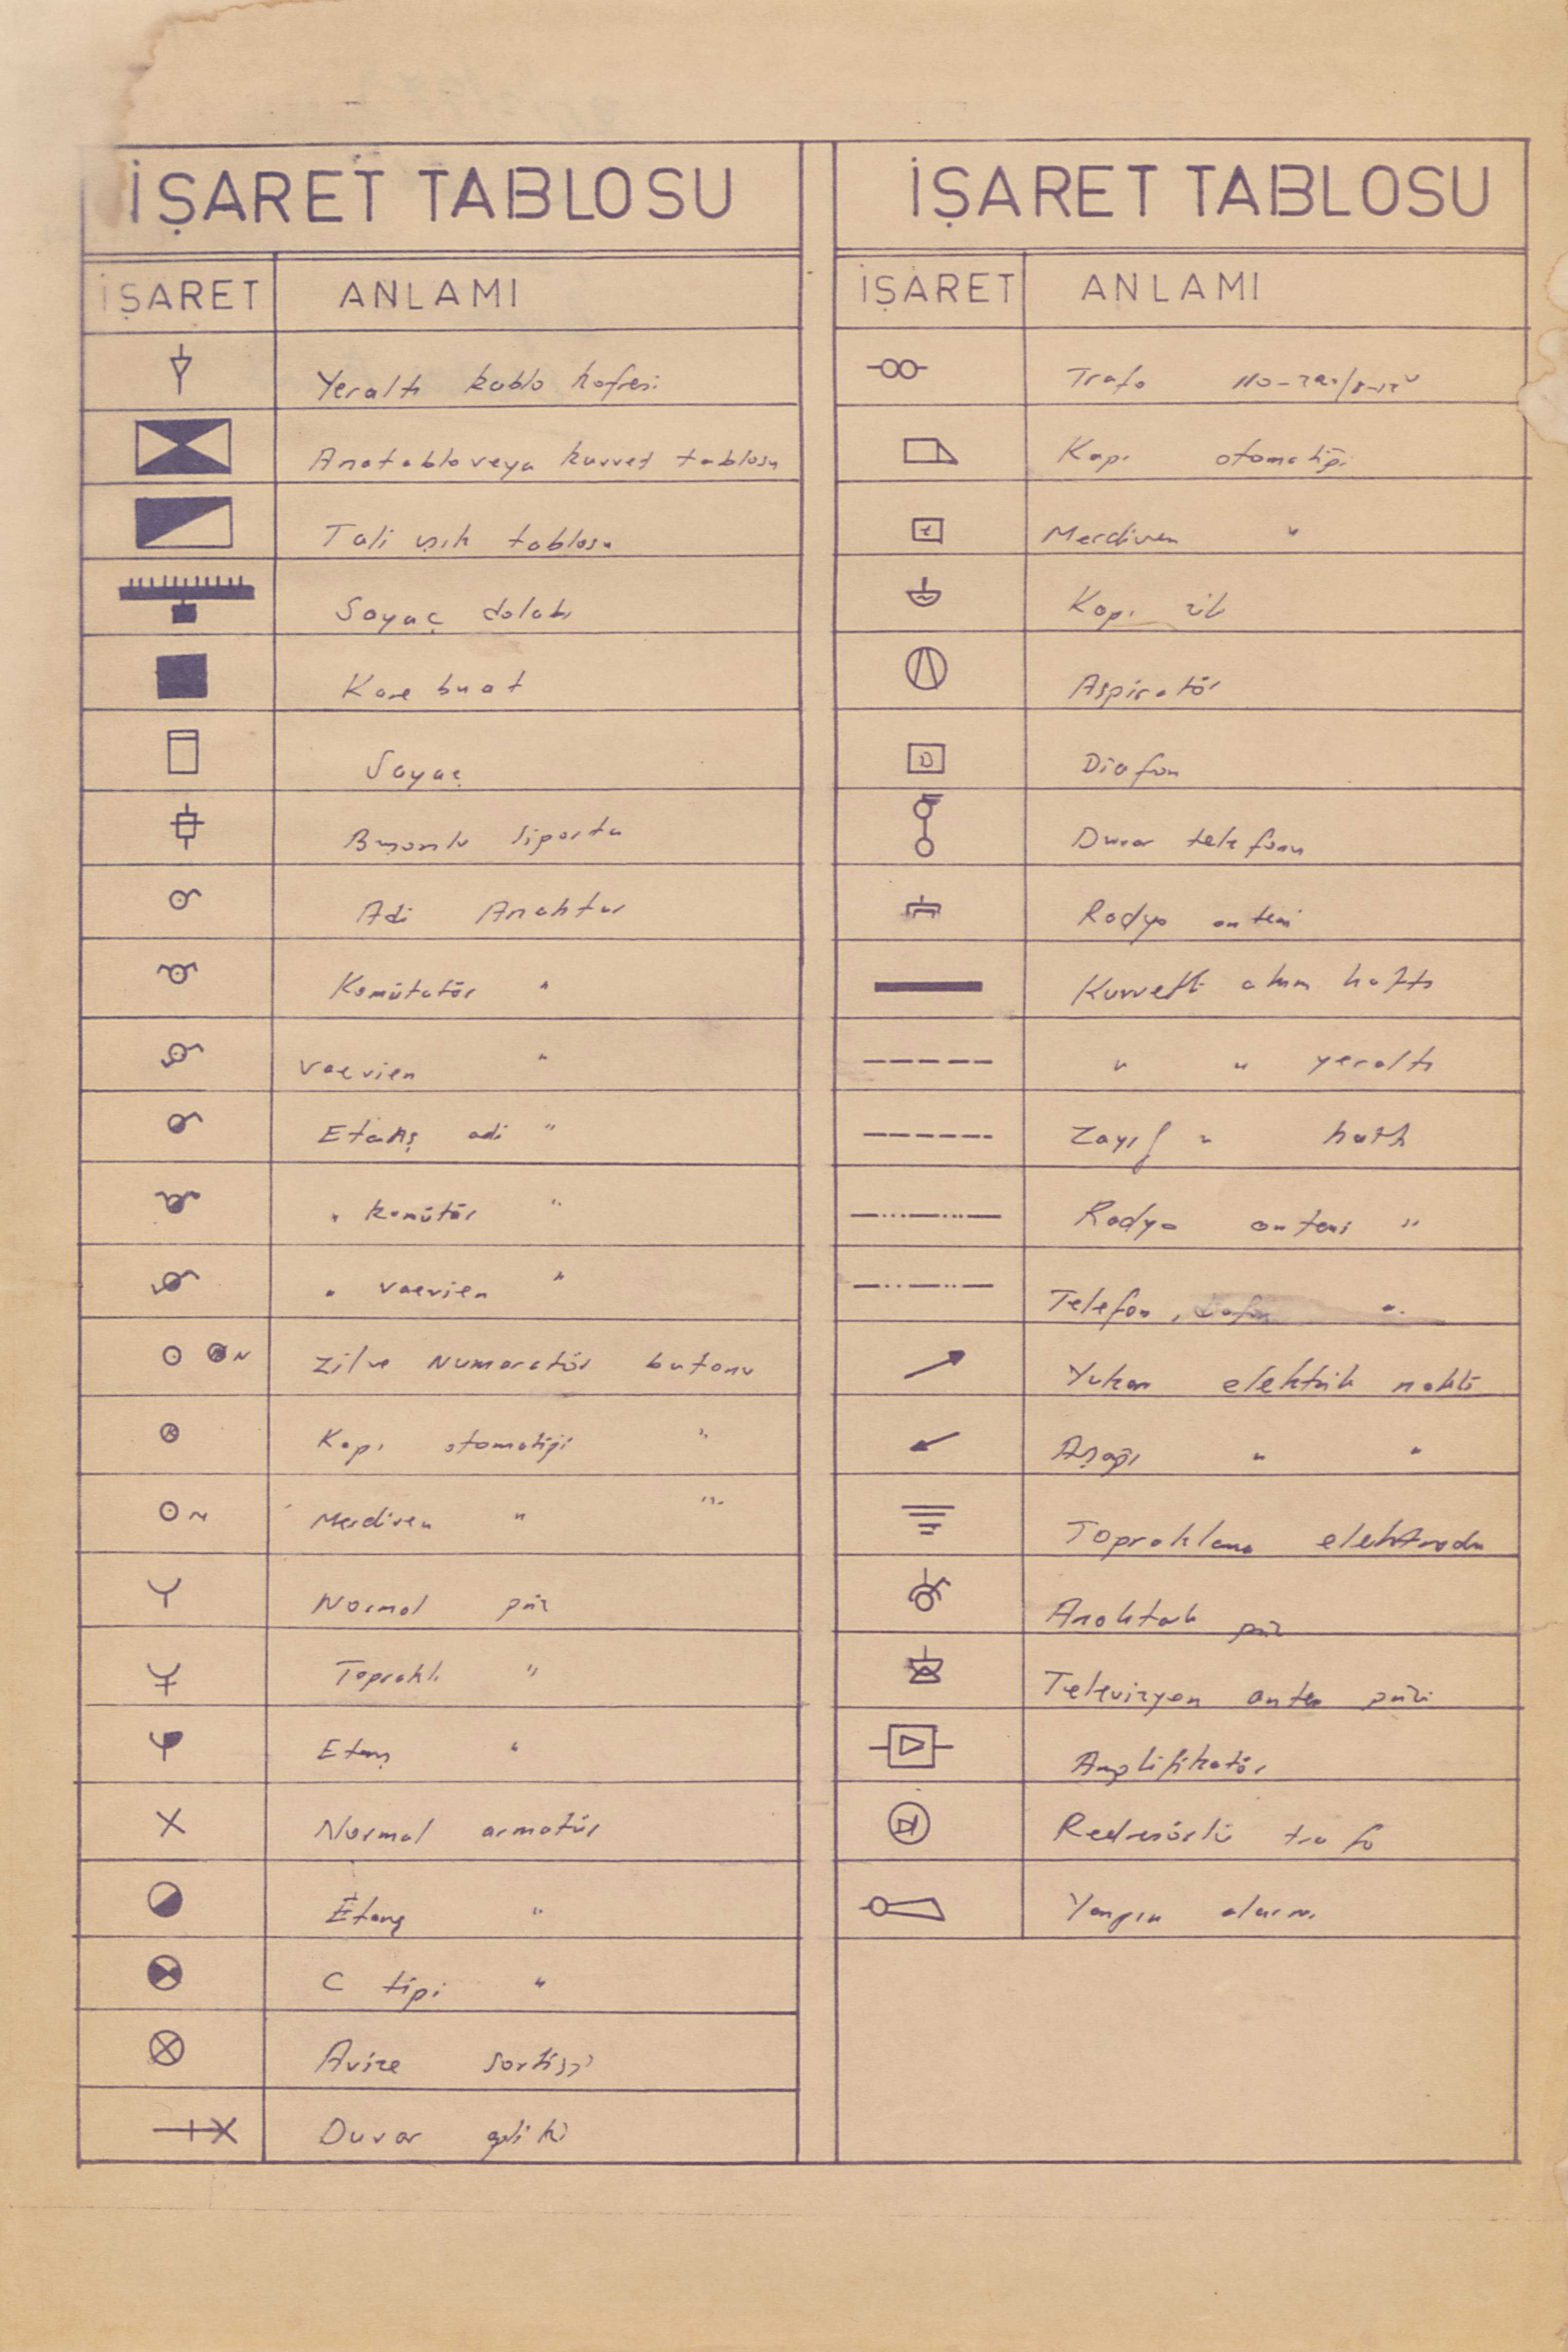 İŞARET TABLOSU
İŞARET ANLAMI
Yeraltı kablo kofresi
Anatablo veya kuvvet tablosu
Tali ışık tablosu
Sayaç dolabı
Kare buat
Sayaç
Buşonlu sigorta
Adi Anahtar
Komütatör "
Vaevien "
Etanş adi "
" komütör "
" vaevien "
N Zil ve Numaratör butonu
K Kapı otomatiği "
N Merdiven " "
Normal priz
Topraklı "
Etanş "
Normal armatür
Etanş "
C tipi "
Avize sortisi
Duvar apliki
İŞARET TABLOSU
İŞARET ANLAMI
Trafo 110-220/8-12V
Kapı otomatiği
t Merdiven "
Kapı zili
Aspiratör
D Diafon
Duvar telefonu
Radyo anteni
Kuvvetli akım hattı
" " yeraltı
Zayıf " hattı
Radyo anteni "
Telefon, diafon "
Yukarı elektrik nakli
Aşağı " "
Topraklama elektrodu
Anahtarlı priz
Televizyon anten prizi
Amplifikatör
Redresörlü trafo
Yangın alarmı